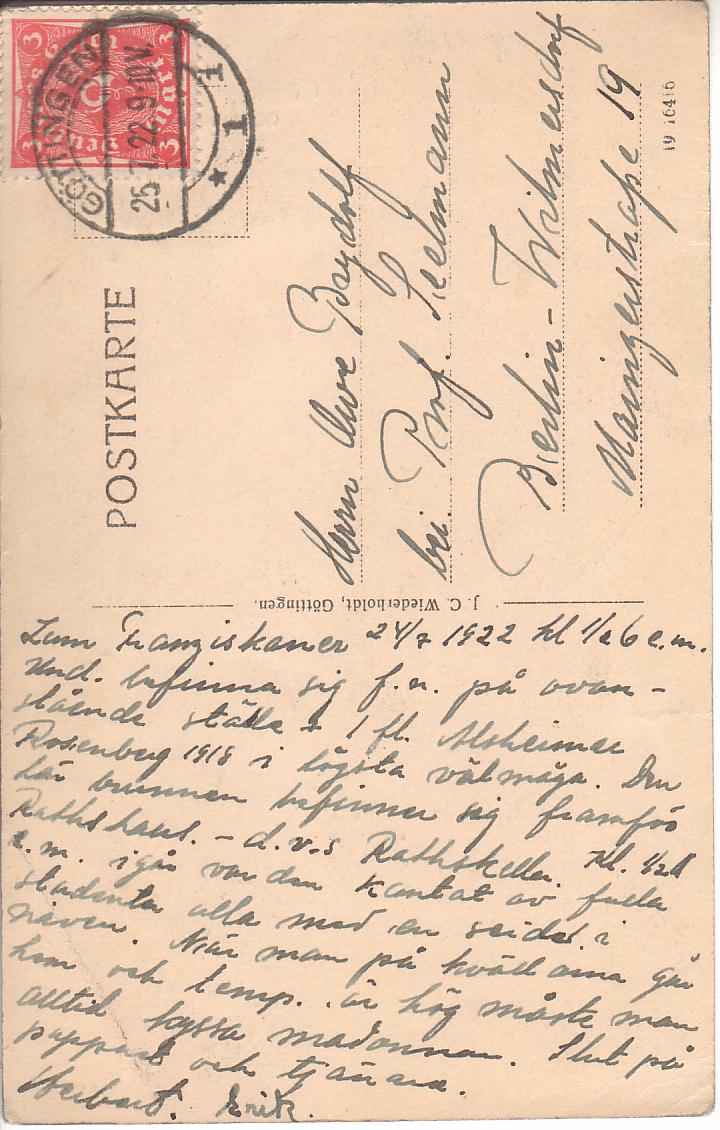 POSTKARTE
GÖTTINGEN
1
25.7.22. 9-10V.
3 Mark 3
Herrn Uwe Brydolf
bei Prof. Seelmann
Berlin-Wilmersdorf
Mainzerstraße 19
19 16416
J. C. Wiederholdt, Göttingen.
Zum Franziskaner 24/7 1922 kl 1/2 6 e.m.
Und. befinna sig f.n. på ovan-
stående ställe + 1 fl. Alsheimer
Rosenberg 1918 i högsta välmåga. Den
här brunnen befinner sig framför
Rathshaus. - d.v.s Rathskeller. Kl. 1/2 11
e.m. igår var den kantat av fulla
studenter alla med en seidel i
näven. När man på kvällarna går
hem och temp. är hög måste man
alltid kyssa madonnan. Slut på
pappret och tjänare.
Herbert. Erik.